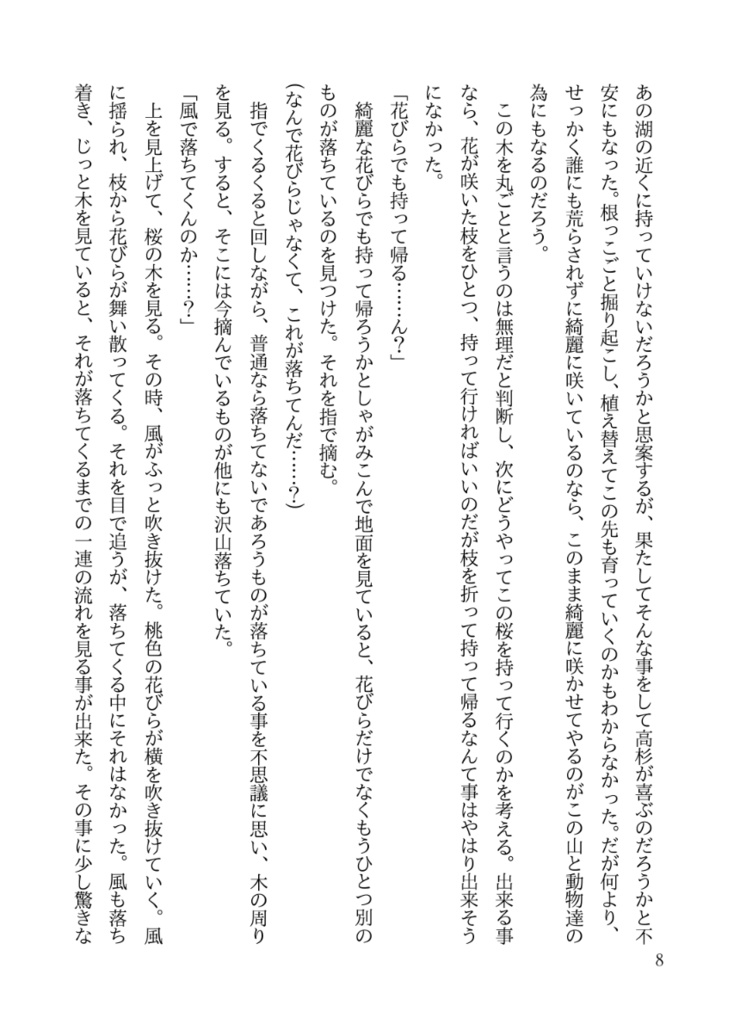 あの湖の近くに持っていけないだろうかと思案するが、果たしてそんな事をして高杉が喜ぶのだろうかと不
安にもなった。根っこごと掘り起こし、植え替えてこの先も育っていくのかもわからなかった。だが何より、
せっかく誰にも荒らされずに綺麗に咲いているのなら、このまま綺麗に咲かせてやるのがこの山と動物達の
為にもなるのだろう。
　この木を丸ごとと言うのは無理だと判断し、次にどうやってこの桜を持って行くのかを考える。出来る事
なら、花が咲いた枝をひとつ、持って行ければいいのだが枝を折って持って帰るなんて事はやはり出来そう
になかった。
「花びらでも持って帰る……ん？」
　綺麗な花びらでも持って帰ろうかとしゃがみこんで地面を見ていると、花びらだけでなくもうひとつ別の
ものが落ちているのを見つけた。それを指で摘む。
(なんで花びらじゃなくて、これが落ちてんだ……？)
　指でくるくると回しながら、普通なら落ちてないであろうものが落ちている事を不思議に思い、木の周り
を見る。すると、そこには今摘んでいるものが他にも沢山落ちていた。
「風で落ちてくんのか……？」
　上を見上げて、桜の木を見る。その時、風がふっと吹き抜けた。桃色の花びらが横を吹き抜けていく。風
に揺られ、枝から花びらが舞い散ってくる。それを目で追うが、落ちてくる中にそれはなかった。風も落ち
着き、じっと木を見ていると、それが落ちてくるまでの一連の流れを見る事が出来た。その事に少し驚きな
8